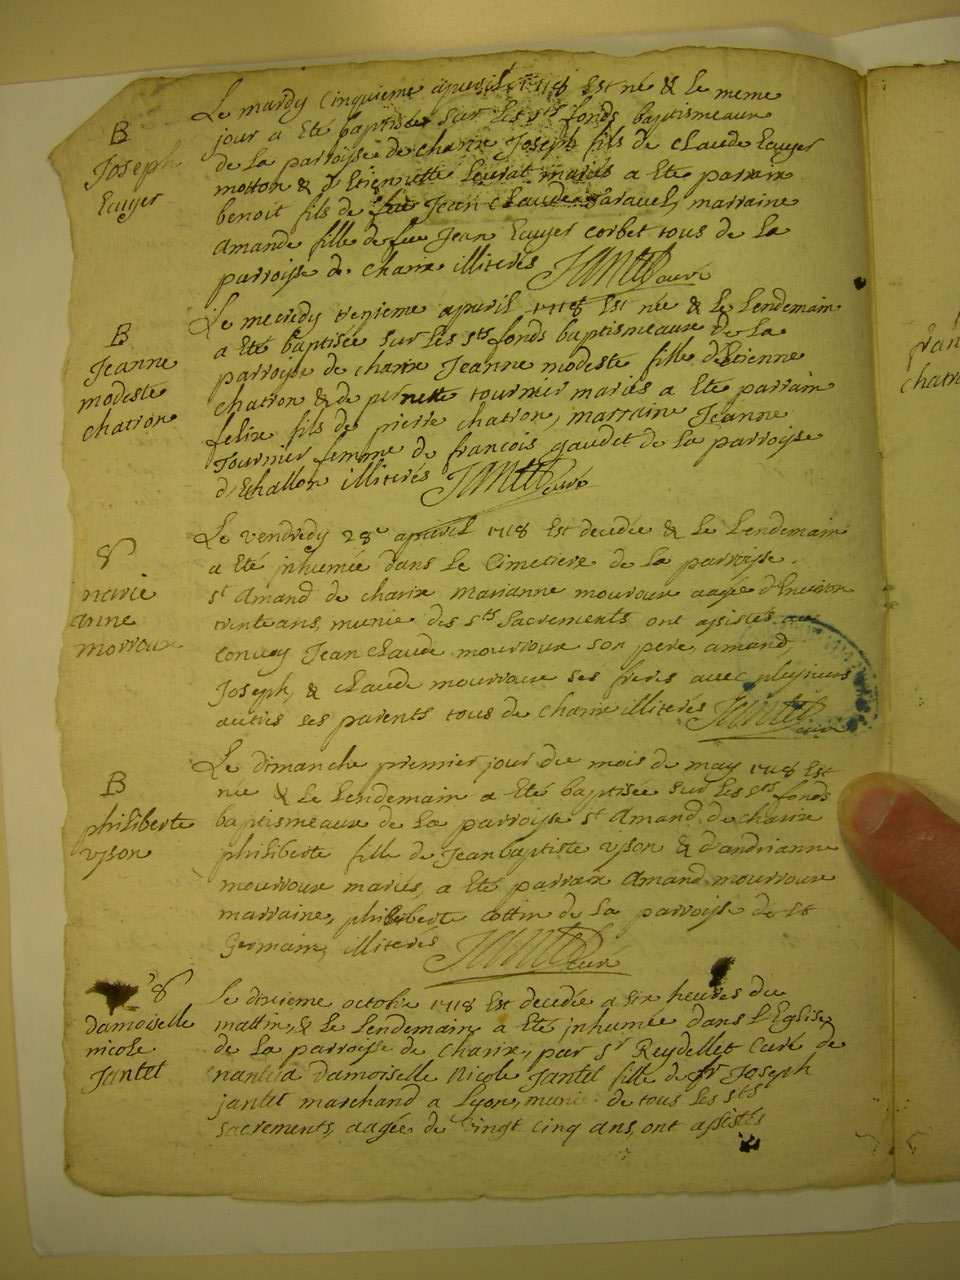 B
Joseph
Ecuyer
Le mardy cinquieme apvril 1718 Est né & le meme
jour a Eté baptisée sur les sts fonds baptismeaux
de la parroisse de charix Joseph fils de claude Ecuyer
motton & d'Etiennette Leurat mariés a Eté parrain
benoit fils de feu Jean claude Jaravel, marraine
Amande fille de feu Jean Ecuyer corbet tous de la
parroisse de charix illiterés Jantet curé
B
Jeanne
modeste
chatron
Le mecredy trezieme apuril 1718 Est née & le Lendemain
a Eté baptisée sur les sts fonds baptismeaux de la
parroisse de charix Jeanne modeste fille d'Etienne
chatron & de pernette tournier mariés a Eté parrain
felix fils de pierre chatron, marrain Jeanne
Tournier femme de francois gaudet de la parroisse
d'Echallon illiterés Jantet curé
8
marie
anne
morroux
Le vendredy 28e apuril 1718 Est decedée & le Lendemain
a Eté jnhumée dans le Cimetiere de la parroisse
st Amand de charix marianne mouroux aagée d'Environ
trente ans, munie des sts sacrements ont assistés au
convoy Jean claude mourroux son pere, amand,
Joseph, & claude mourroux ses freres avec plusieurs
autres ses parents tous de charix illiterés Jantet curé
B
philiberte
vyson
Le dimanche premier jour du mois de may 1718 Est
née & le Lendemain a Eté baptisée sur les sts fonds
baptismeaux de la parroisse st Amand de charix
philiberte fille de Jean baptiste vyson & d'andrianne
mourroux mariés, a Eté parrain Amand mourroux
marraine, philiberte cottin de la parroisse de st
Germain, illiterés Jantet curé
8
damoiselle
nicole
Jantet
Le dixieme octobre 1718 Est decedée a six heures du
mattin, & le Lendemain a Eté jnhumée dans l'Eglise
de la parroisse de charix, par sr Reydellet Curé de
nantua damoiselle Nicole Jantet fille de sr Joseph
jantet marchand a Lyon, munie de tous les sts
sacrements, aagée de vingt cinq ans, ont assistés
fran
chatr